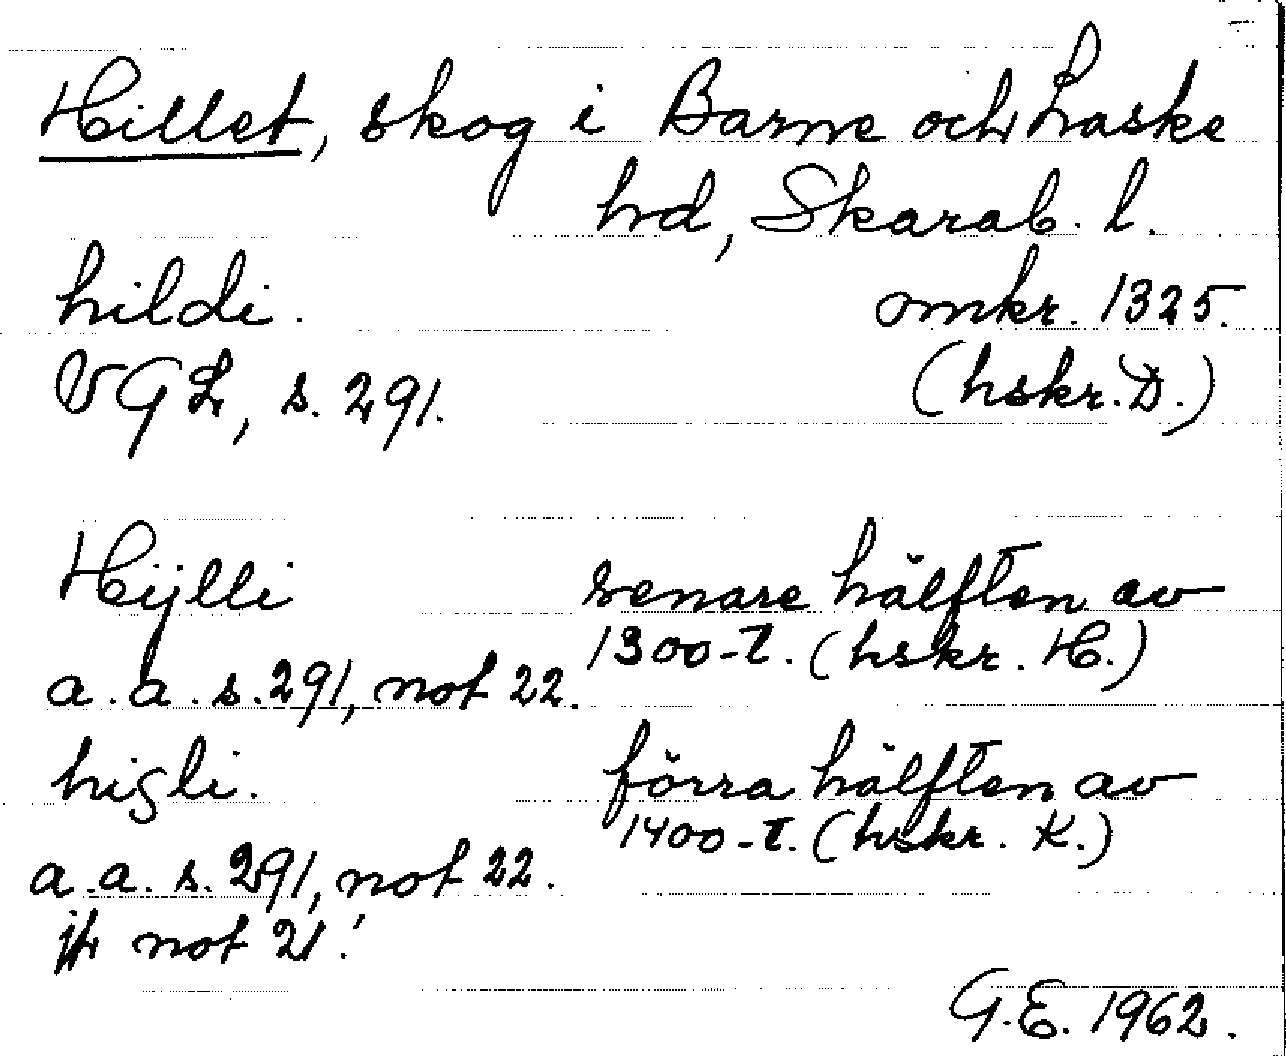 Hillet, skog i Barne och Laske
hd, Skarab. l.
hildi. omkr. 1325.
VGL, s. 291. (hskr. D.)
Hÿlli senare hälften av
1300-t. (hskr. H.)
a.a. s. 291, not 22.
higli. förra hälften av
1400-t. (hskr. K.)
a.a. s. 291, not 22.
jfr not 21!
G.E. 1962.